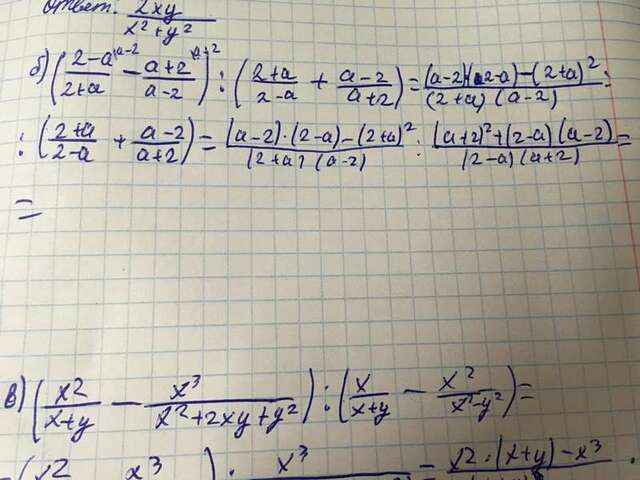 Ответ: 2xy/(x²+y²)
б) ((2-a)/(2+a) ^(a-2) - (a+2)/(a-2) ^(a+2)) : ((2+a)/(2-a) + (a-2)/(a+2)) = ((a-2)(2-a)-(2+a)²)/((2+a)(a-2)) :
: ((2+a)/(2-a) + (a-2)/(a+2)) = ((a-2)·(2-a)-(2+a)²)/((2+a)(a-2)) : ((a+2)²+(2-a)(a-2))/((2-a)(a+2)) =
=
в) (x²/(x+y) - x³/(x²+2xy+y²)) : (x/(x+y) - x²/(x²-y²)) =